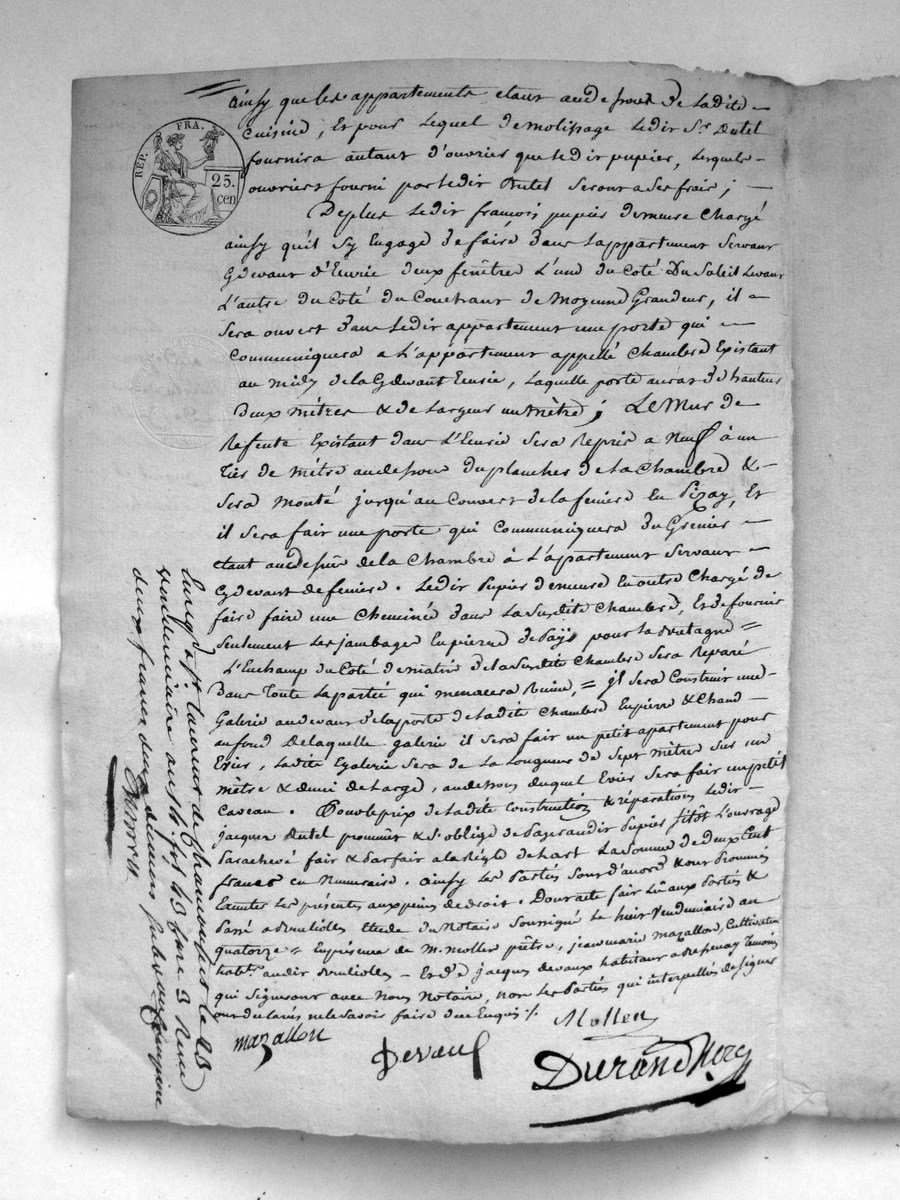 RÉP. FRA.
25.
cen
ainsy que les appartements etant au dessous de la dite
cuisine, et pour lequel demolissage ledit Sr Dutel
fournira autant d'ouvrier que ledit pupier, lesquels
ouvriers fourni par ledit Dutel seront a ses frais;
De plus ledit françois pupier demeure Chargé
ainsy qu'il sy Engage de faire dans l'appartement servant
Cydevant d'Ecurie deux fenêtres L'une du Coté Du Soleil Levant
L'autre du Coté du Couchant de Moyenne Grandeur, il
sera ouvert dans ledit appartement une porte qui
Communiquera a L'appartement appellé Chambre Existant
au midy de la Cydevant Ecurie, laquelle porte aura de hauteur
Deux mètres & de Largeur un Mètre; Le Mur de
Refente Existant dans L'Ecurie sera Repris a Neuf à un
Tier de Mètre au dessous du plancher de la Chambre &
sera monté jusqu'au Couvert de la feniere En Pizay, Et
il sera fait une porte qui Communiquera du Grenier
etant au dessus de la Chambre à L'apartement servant
Cydevant de feniere. Ledit Pupier demeure En outre Chargé de
faire faire une Cheminée dans la susdite Chambre, Et de fournir
seulement les jambages En pierre de Pays pour
du Coté de matin de la susdite Chambre sera Reparé
Dans Toute la partie qui menacera Ruine, = jl sera Construit une
Galerie au devant de la porte de ladite Chambre En pierre & Chaud
au fond De laquelle galerie il sera fait un petit apartement pour
Evier, ladite Galerie sera de la Longueur de Sept mètre sur un
mètre & demi de Large, au dessous duquel Evier sera fait un petit
Caveau. Pour le prix de ladite Construction & réparations ledit
jacques Dutel promet & s'oblige de payer audit Pupier sitôt L'ouvrage
Parachevé fait & Parfait a la Règle de L'art La somme de deux Cent
francs En Numeraire. Ainsy les Parties sont d'acord & ont Promis
Executer les présentes aux peines de droit. Dont acte fait Lû aux Parties &
Passé a Etude du Notaire soussigné Le huit Vendemiaire an
quatorze = En présence de M. Mollen prêtre, jean marie Mazallon, Cultivateur
habt. audit Et de jacques devaux habitant a Temoins
qui signeront avec Nous Notaire, non les Parties qui interpellés de signer
ont déclarés ne le savoir faire de ce Enquis ./.
Mollen
mazallon
Devaux
Durand Nore
Enregistré a St Laurent de Chamousset le 13
vendemiaire an 14 fol 43 Case 3 Reçu
deux francs deux decimes